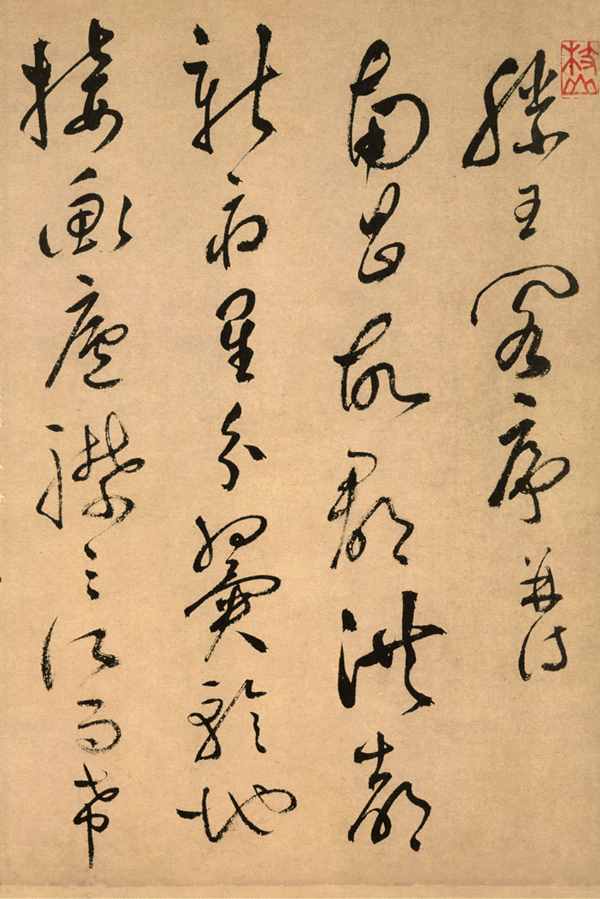 滕王閣序并詩
南昌故郡洪都
新府星分翼軫地
接衡廬襟三江而帶
枝山